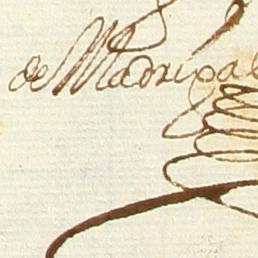 de Madrigal